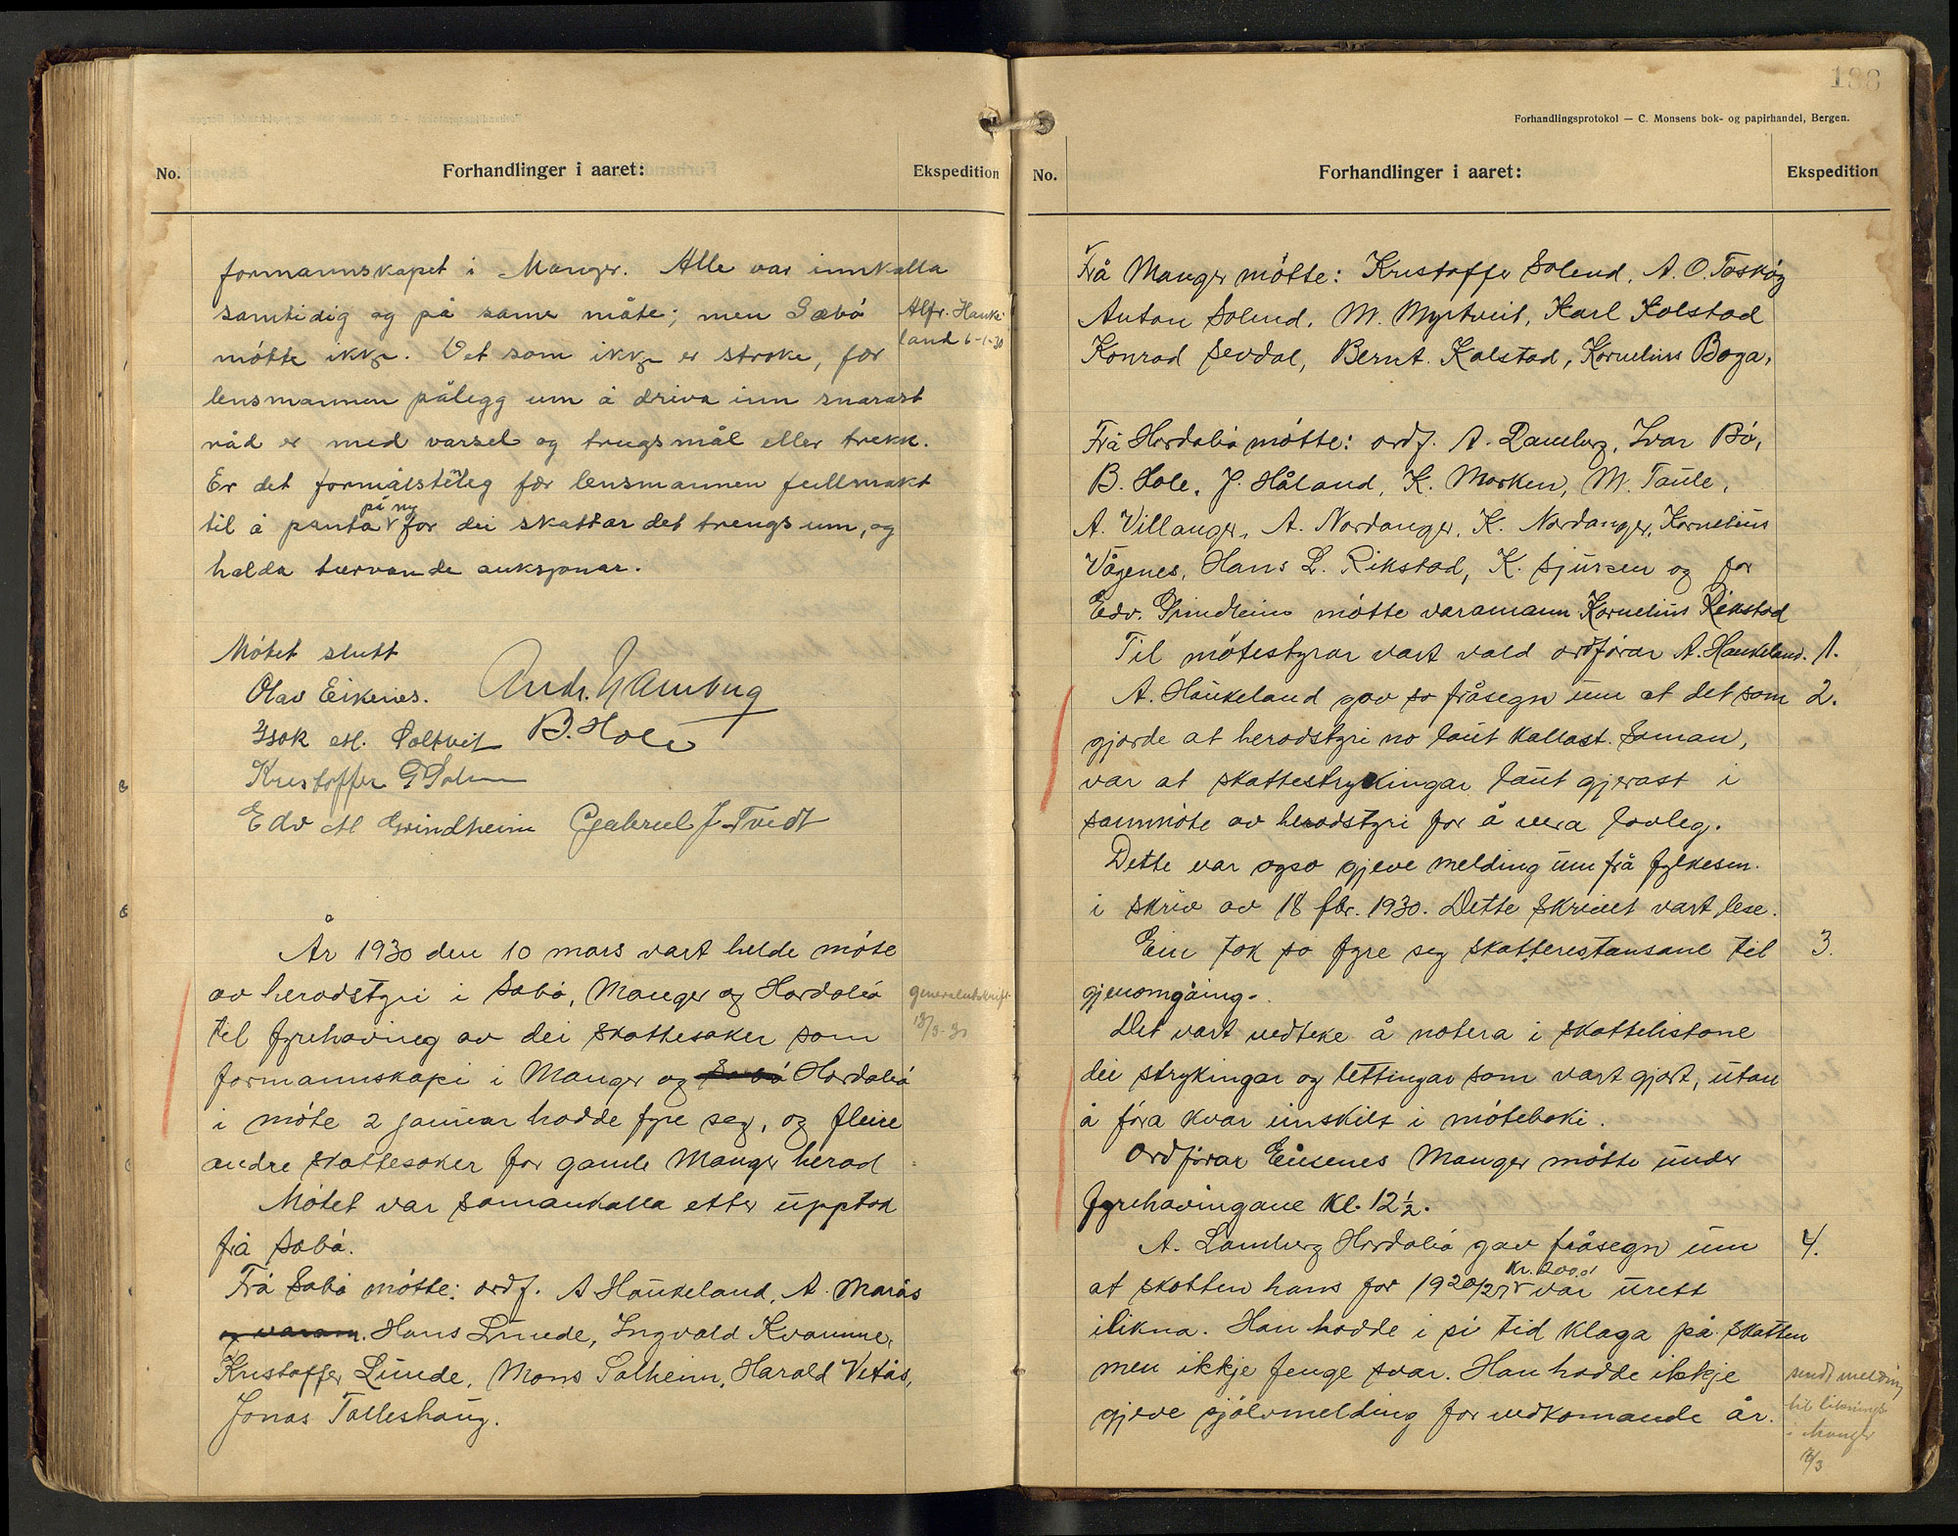 No.
Forhandlinger i aaret:
Ekspedition
formannskapet i Manger. Alle var innkalla
samtidig og på same måte; men Sæbö
mötte ikkje. Det som ikkje er stroke, fær
lensmannen pålegg um å driva inn snarast
råd er med varsel og trugsmål eller trekk.
Er det formålstenleg fær lensmannen fullmakt
til å panta på ny for dei skattar det trengs um, og
halda turvande auksjonar.
Alfr. Hauke-
land 6-1-30
Mötet slutt
Olav Eikenes. Andr. Lamberg
Isak M. Toltvit B. Hole
Kristoffer G Solem
Edv M Grindheim Gabriel J. Tvedt
År 1930 den 10 mars vart helde möte
av heradstyri i Sæbö, Manger og Hordabö
til fyrehaving av dei skattesaker som
formannskapi i Manger og Sæbö Hordabö
i möte 2 januar hadde fyre seg, og fleire
andre skattesaker for gamle Manger herad
Mötet var samankalla etter upptak
frå Sæbö.
Frå Sæbö mötte: ordf. A Haukeland, A. Marås
og varam. Hans Lunde, Ingvald Kvamme,
Kristoffer Lunde, Mons Solheim, Harald Vetås,
Jonas Tolleshaug.
generalutskrift
13/3-30
188
Forhandlingsprotokol — C. Monsens bok- og papirhandel, Bergen.
No.
Forhandlinger i aaret:
Ekspedition
Frå Manger mötte: Kristoffer Solend, A. O. Toskög
Anton Solend, M. Myrtveit, Karl Kolstad
Konrad Sevdal, Bernt Kolstad, Kornelius Boga,
Frå Hordabö mötte: ordf. A. Lamberg, Ivar Bö,
B. Hole, J. Håland, K. Marken, M. Taule,
A. Villanger, A. Nordanger, K. Nordanger, Kornelius
Vågenes, Hans L. Rikstad, K. Sjursen og for
Edv. Grindheim mötte varamann Kornelius Rikstad
Til mötestyrar vart vald ordförar A. Haukeland. 1.
A. Haukeland gav so fråsegn um at det som 2.
gjorde at heradstyri no laut kallast saman,
var at skattestrykingar laut gjerast i
sammöte av heradstyri for å vera lovleg.
Dette var ogso gjeve melding um frå fylkesm.
i skriv av 18 fbr. 1930. Dette skrivet vart lese.
Ein tok so fyre seg skatterestansane til 3.
gjenomgåing.
Det vart vedteke å notera i skattelistone
dei strykingar og lettingar som vart gjort, utan
å föra kvar einskilt i möteboki.
Ordförar Eikenes Manger mötte under
fyrehavingane kl. 12½.
A. Lamberg Hordabö gav fråsegn um 4.
at skatten hans for 1920/21 kr. 200,- var urett
ilikna. Han hadde i si tid klaga på skatten
men ikkje fenge svar. Han hadde ikkje
gjeve sjölvmelding for vedkomande år.
sendt melding
til liknings
i Manger
/3